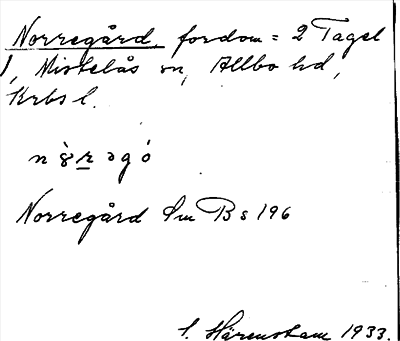 Norregård, fordom = 2 Tagel
1, Mistelås sn, Allbo hd,
Krbs l.
n ȣ̀ r ə g ó
Norregård Sm B s 196
S. Härenstam 1933.